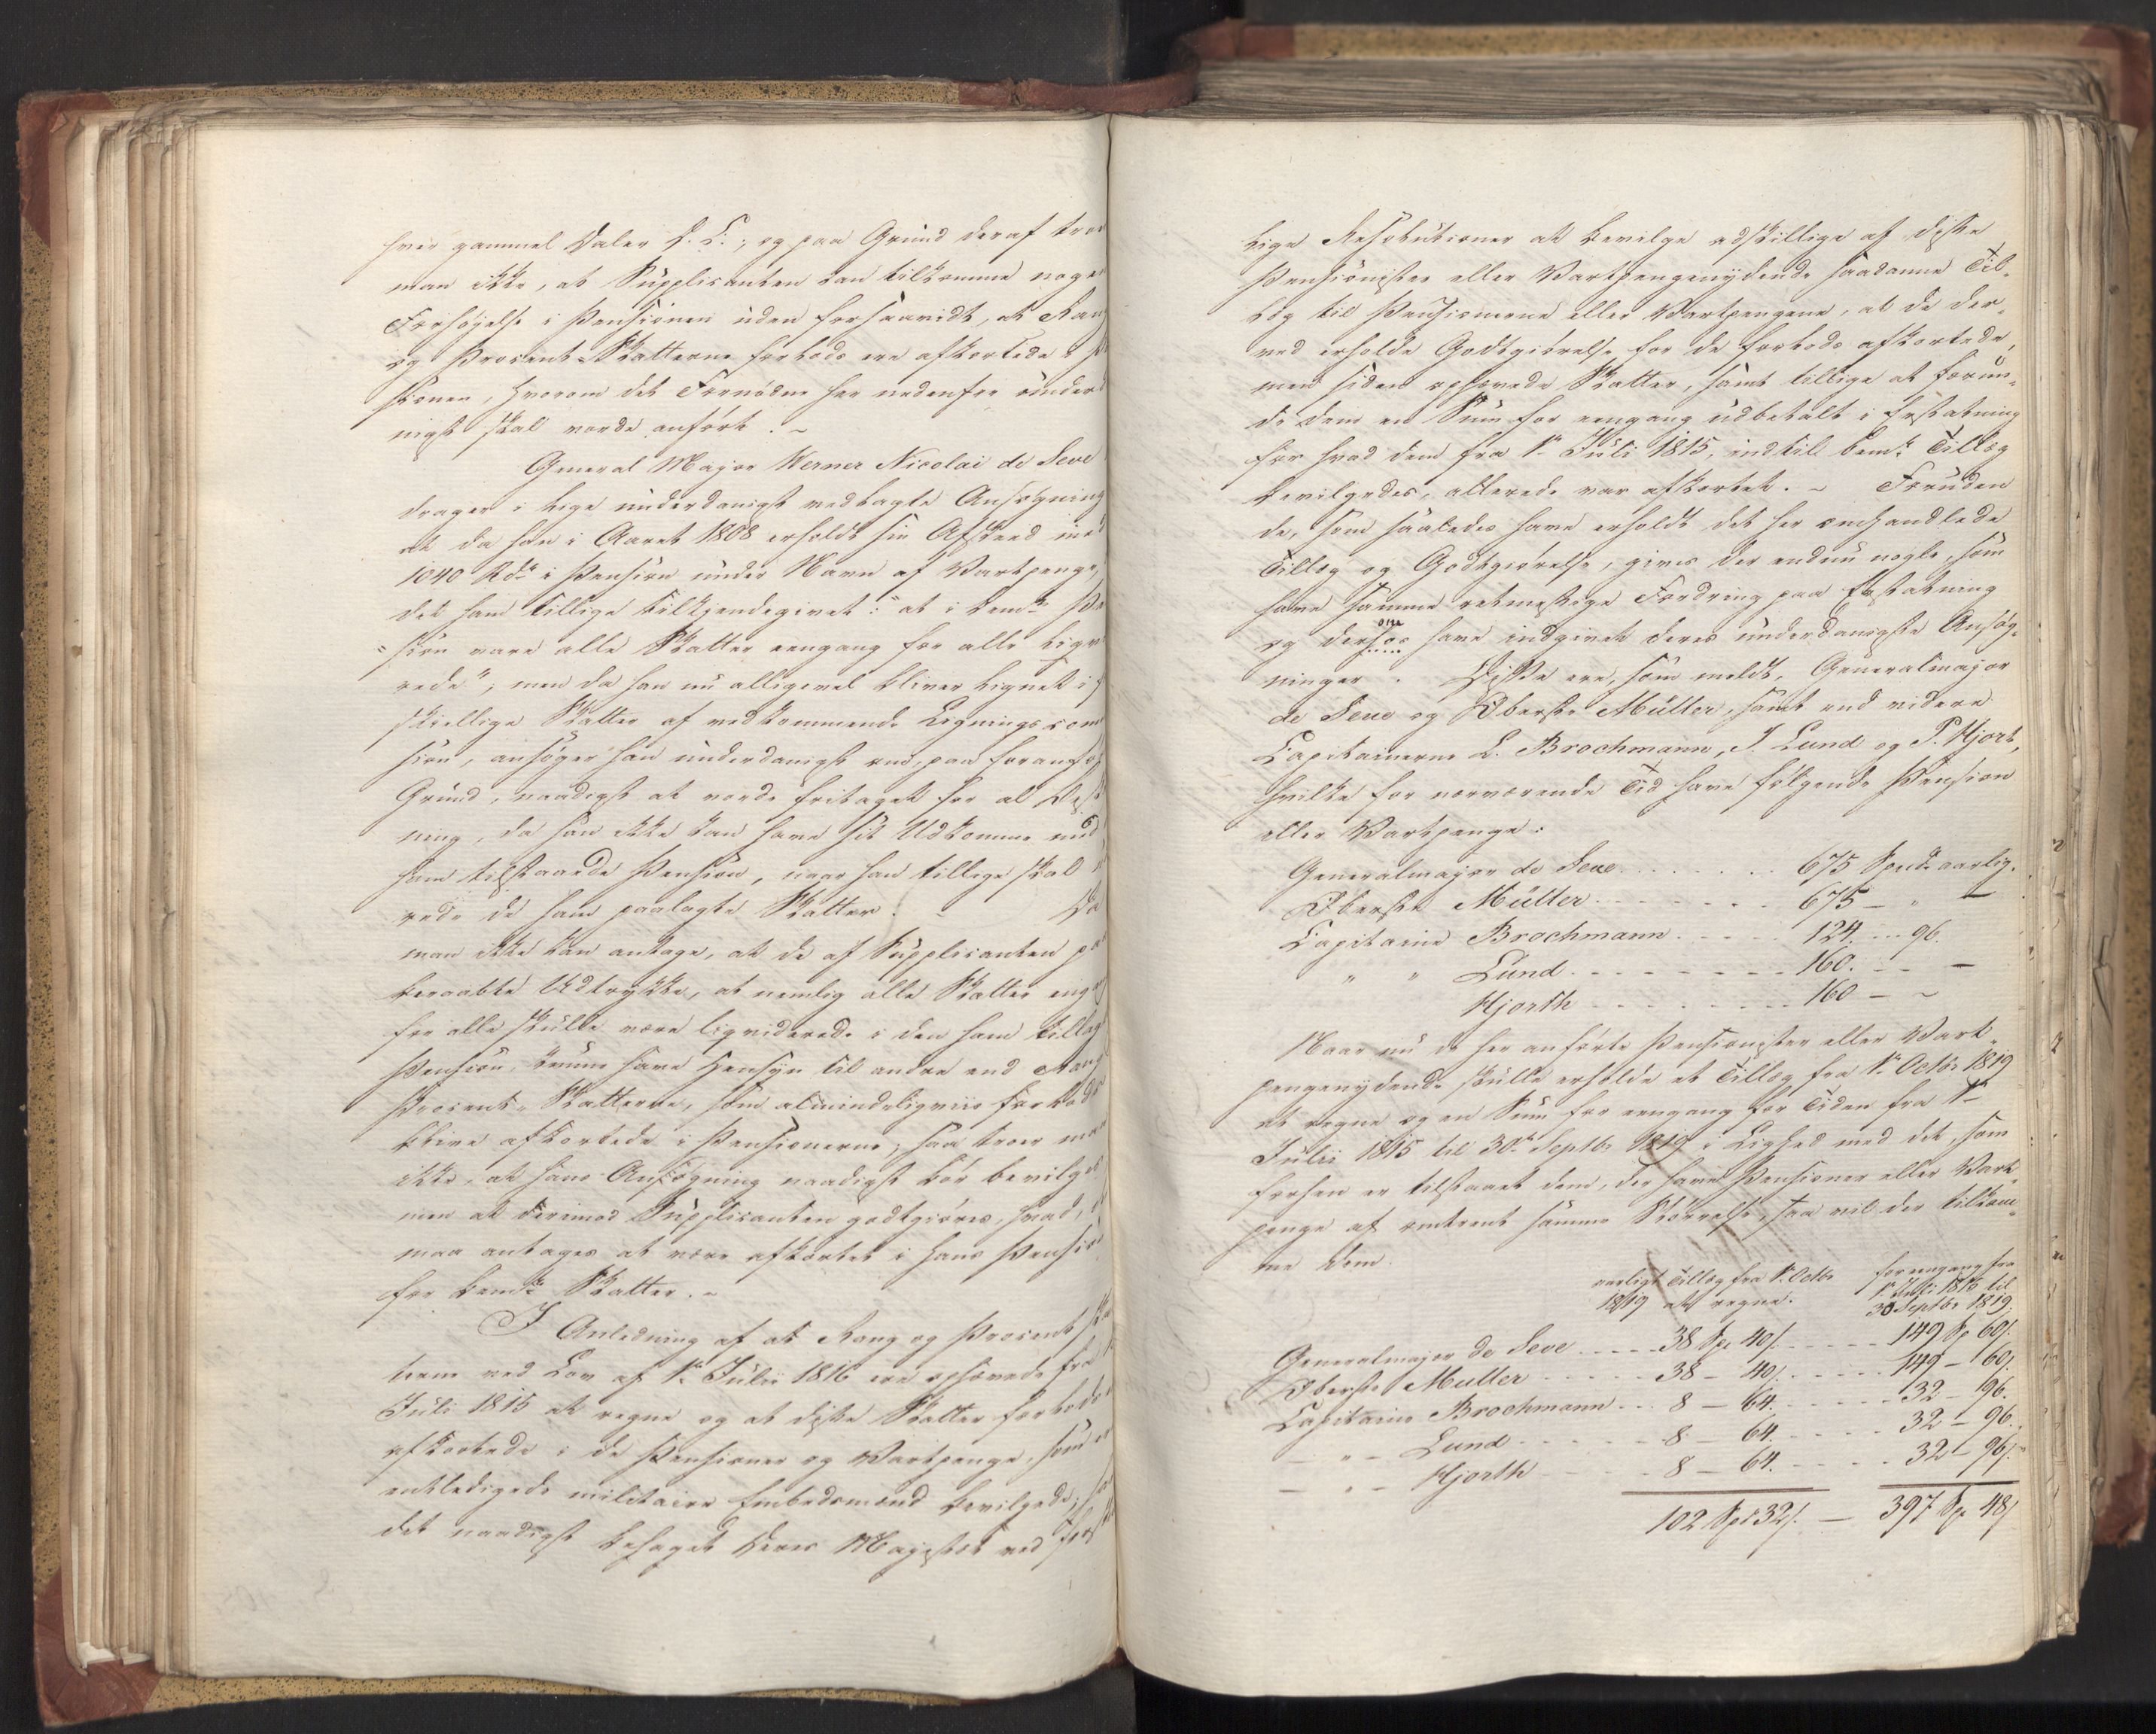 hver gammel Daler D. C.; og paa Grund deraf troer
man ikke, at Supplicanten kan tilkomme nogen
Forhøyelse i Pensionen uden forsaavidt, at Rang
og Procent-Skatterne forlods ere afkortede i
sionen, hvorom det Fornødne her nedenfor under
nigst skal vorde anført. –
General Major Werner Nicolai de Seve
drager i lige underdanigst vedlagte Ansøgning
at da han i Aaret 1808 erholdt sin Afskeed med
1040 Rdr i Pension under Navn af Vartpenge,
det ham tillige tilkjendegivet: "at i bemte
"sion vare alle Skatter eengang for alle liqvi
rede", men da han nu alligevel bliver lignet i
skiellige Skatter af vedkommende Lignings com
sion, ansøger han underdanigst om, paa foranf
Grund, naadigst at vorde fritaget for al
ning, da han ikke kan have sit Udkomme med
ham tilstaaede Pension, naar han tillige skal
rede de ham paalagte Skatter. – Da
man ikke kan antage, at de af Supplicanten
beraabte Udtrykke, at nemlig alle Skatter eengang
for alle skulle være liqviderede i den ham tillagte
Pension, kunne have Hensyn til andre end Rang
Procent-Skatterne, som almindeligviis forlods
blive afkortede i Pensionerne, saa troer man
ikke, at hans Ansøgning naadigst bør bevilges
men at derimod Supplicanten godtgiøres, hvad,
maa antages at være afkortet i hans Pension
for bemte Skatter. –
I Anledning af at Rang og Procent
terne ved Lov af 1ste Julii 1816 ere ophævede fra
Juli 1815 at regne og at disse Skatter forlods
afkortede i de Pensioner og Vartpenge, som
entledigede militaire Embedsmænd bevilgede,
det naadigst behaget Deres Majestæt ved
lige Resolutioner at bevilge adskillige af disse
Pensionister eller Vartpengenydende saadanne Til-
læg til Pensionerne eller Vartpengene, at de der-
ved erholde Godtgiørelse for de forlods afkortede,
men siden ophævede Skatter, samt tillige at forun-
de dem en Sum for eengang udbetalt i Erstatning
for hvad dem fra 1ste Juli 1815, indtil bemte Tillæg
bevilgedes, allerede var afkortet. – Foruden
de, som saaledes have erholdt det her omhandlede
Tillæg og Godtgiørelse, gives der endnu nogle, som
have samme retmæssige Fordring paa Erstatning
og derhos have indgivet deres underdanigste Ansøg-
om
ninger. Disse ere, som meldt, Generalmajor
de Seue og Oberste Müller, samt end videre
Capitainerne L. Brochmann, J. Lund og P. Hjort,
hvilke for nærværende Tid have følgende Pension
eller Vartpenge:
Generalmajor de Seue . . . . . 675 Spd. aarlig.
Oberste Müller . . . . . 675 – " –
Capitaine Brochmann . . . . . 124 . . . 96.
" " Lund . . . . . 160. – –
Hjorth . . . . . 160 – ~
Naar nu de her anførte Pensionister eller Vart-
pengenydende skulle erholde et Tillæg fra 1ste Octbr 1819
at regne og en Sum for eengang for Tiden fra 1ste
Julii 1815 til 30te Septbr 1819 i Lighed med det, som
forhen er tilstaaet dem, der have Pensioner eller Vart-
penge af omtrent samme Størrelse, saa vil der tilkom-
me dem.
aarligt Tillæg fra 1ste Octbr 1819 at regne.
for eengang fra 1ste Juli 1815 til 30 Septbr 1819.
Generalmajor de Seve . . . 38 Sp. 40/. . . . 149 Sp 60/.
Oberste Muller . . . 38 – 40/. . . . 149 – 60/.
Capitaine Brochmann . . . 8 – 64. . . . 32 – 96.
– " – Lund . . . 8 – 64. . . . 32 – 96.
– " – Hjorth . . . 8 – 64. . . . 32 – 96/.
102 Spd 32/. – 397 Sp 48/